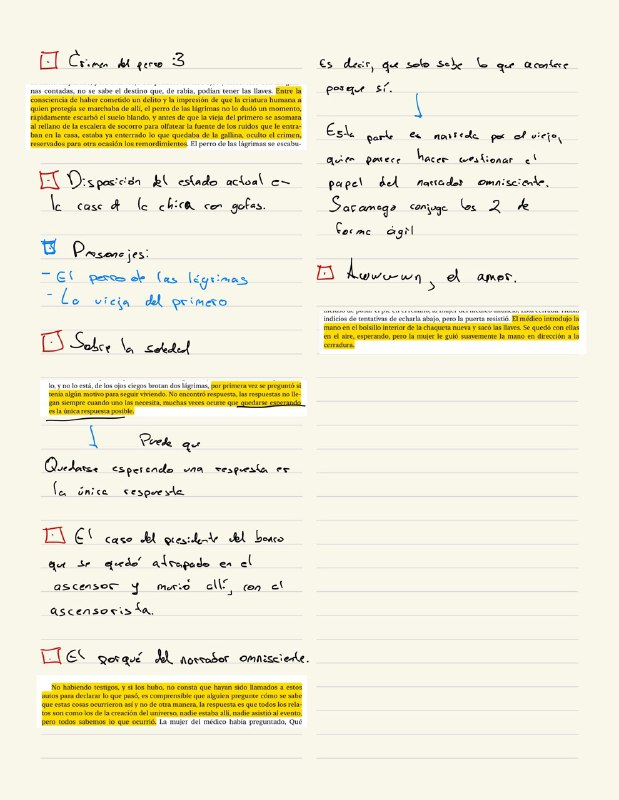 Crimen del perro :3
nas contadas, no se sabe el destino que, de rabia, podían tener las llaves. Entre la
consciencia de haber cometido un delito y la impresión de que la criatura humana a
quien protegía se marchaba de allí, el perro de las lágrimas no lo dudó un momento,
rápidamente escarbó el suelo blando, y antes de que la vieja del primero se asomara
al rellano de la escalera de socorro para olfatear la fuente de los ruidos que le entra-
ban en la casa, estaba ya enterrado lo que quedaba de la gallina, oculto el crimen,
reservados para otra ocasión los remordimientos. El perro de las lágrimas se escabu-
Disposición del estado actual en
la casa de la chica con gafas.
Personajes:
- El perro de las lágrimas
- La vieja del primero
Sobre la soledad
lo, y no lo está, de los ojos ciegos brotan dos lágrimas, por primera vez se preguntó si
tenía algún motivo para seguir viviendo. No encontró respuesta, las respuestas no lle-
gan siempre cuando uno las necesita, muchas veces ocurre que quedarse esperando
es la única respuesta posible.
Puede que
Quedarse esperando una respuesta es
la única respuesta
El caso del presidente del banco
que se quedó atrapado en el
ascensor y murió allí, con el
ascensorista.
El porqué del narrador omnisciente.
No habiendo testigos, y si los hubo, no consta que hayan sido llamados a estos
autos para declarar lo que pasó, es comprensible que alguien pregunte cómo se sabe
que estas cosas ocurrieron así y no de otra manera, la respuesta es que todos los rela-
tos son como los de la creación del universo, nadie estaba allí, nadie asistió al evento,
pero todos sabemos lo que ocurrió. La mujer del médico había preguntado, Qué
Es decir, que solo sabe lo que acontece
porque sí.
Esta parte es narrada por el viejo,
quien parece hacer cuestionar el
papel del narrador omnisciente.
Saramago conjuga los 2 de
forma ágil
Awwwwn, el amor.
indicios de tentativas de echarla abajo, pero la puerta resistió. El médico introdujo la
mano en el bolsillo interior de la chaqueta nueva y sacó las llaves. Se quedó con ellas
en el aire, esperando, pero la mujer le guió suavemente la mano en dirección a la
cerradura.